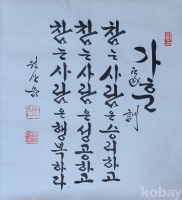 가훈
家訓
참는 사람은 승리하고
참는 사람은 성공하고
참는 사람은 행복하라
kobay